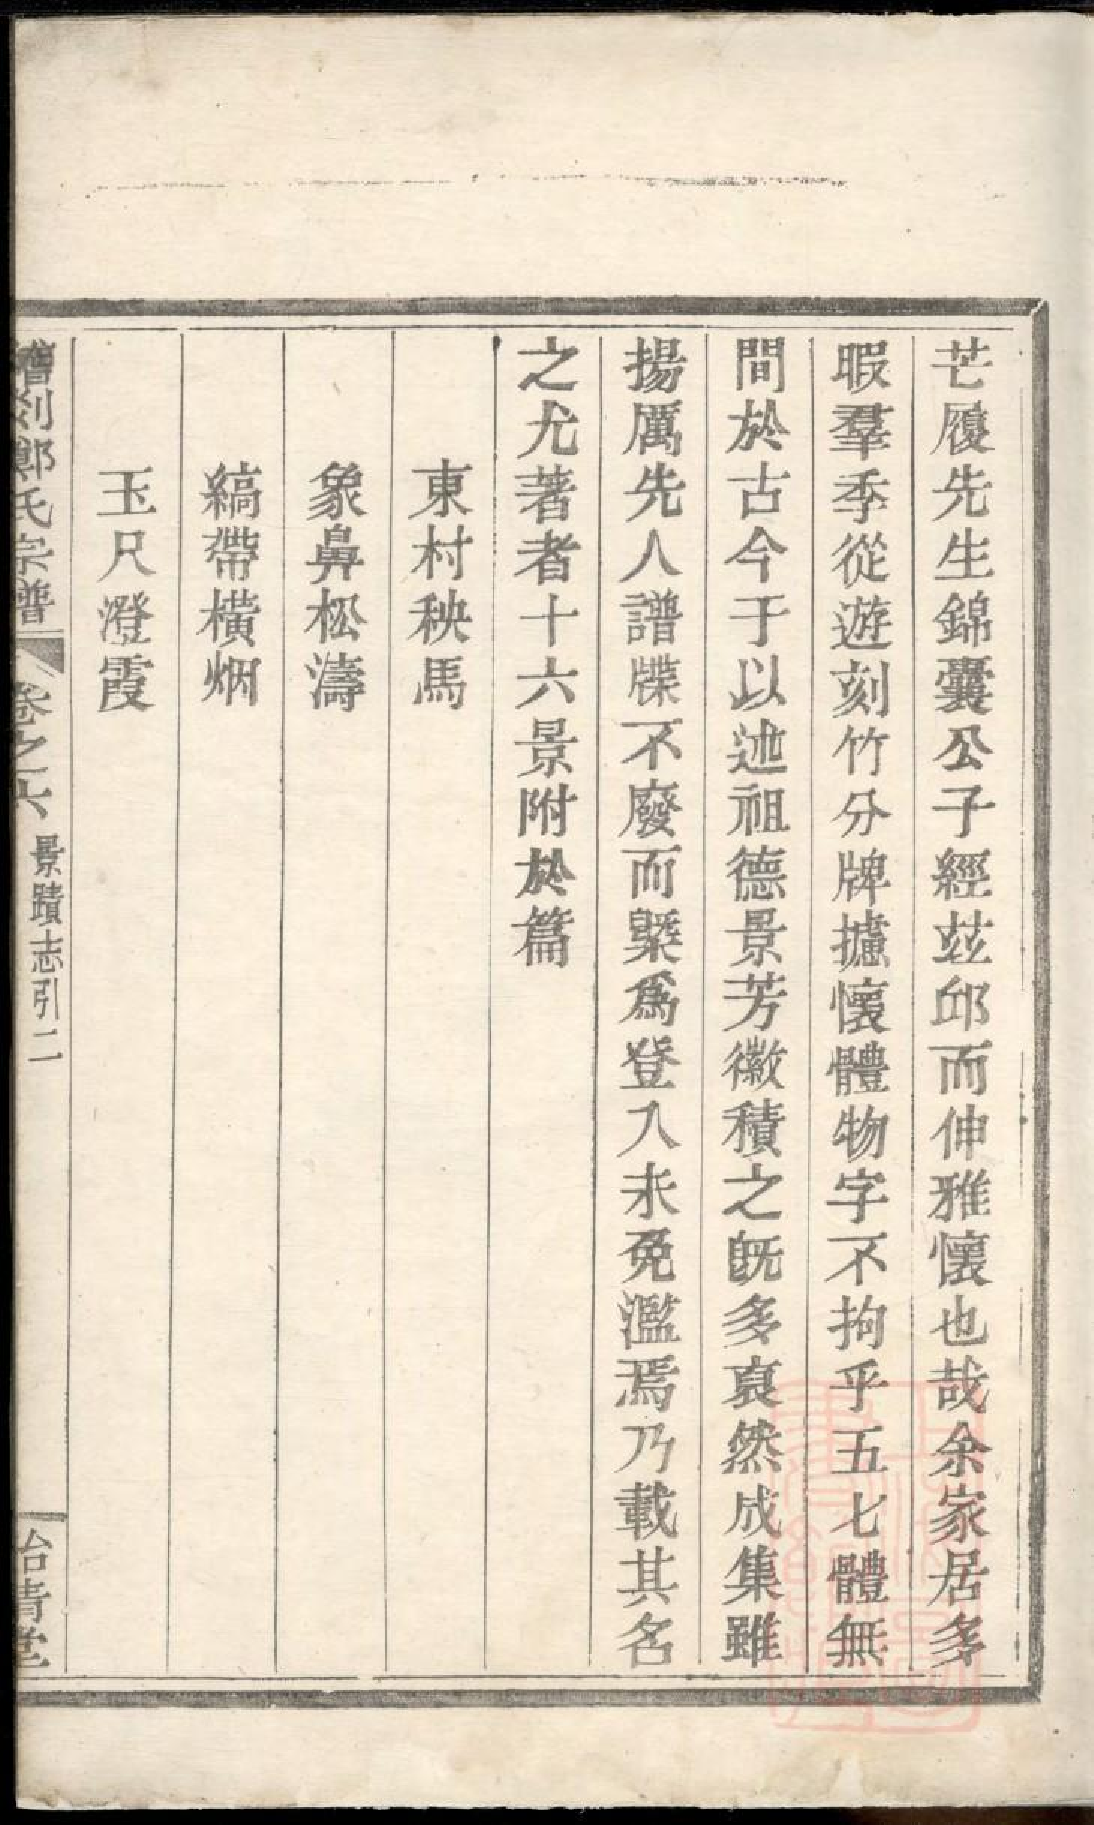 芒履先生錦囊公子經茲邱而伸雅懷也哉余家居多
暇羣季從遊刻竹分牌攄懷體物字不拘乎五七體無
間於古今于以述祖德景芳徽積之旣多裒然成集雖
揚厲先人譜牒不廢而槩爲登入未免濫焉乃載其名
之尤著者十六景附於篇
東村秧馬
象鼻松濤
縞帶橫烟
玉尺澄霞
剡鄭氏宗譜
卷之六
景蹟志引二
治青堂